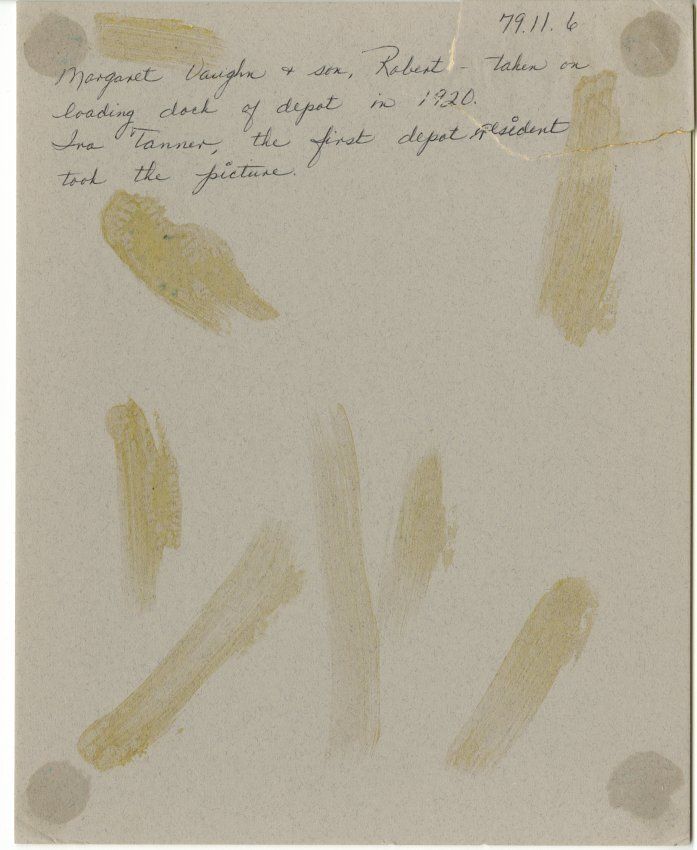 79.11.6
Margaret Vaughn + son, Robert - taken on
loading dock of depot in 1920.
Ira Tanner, the first depot resident
took the picture.